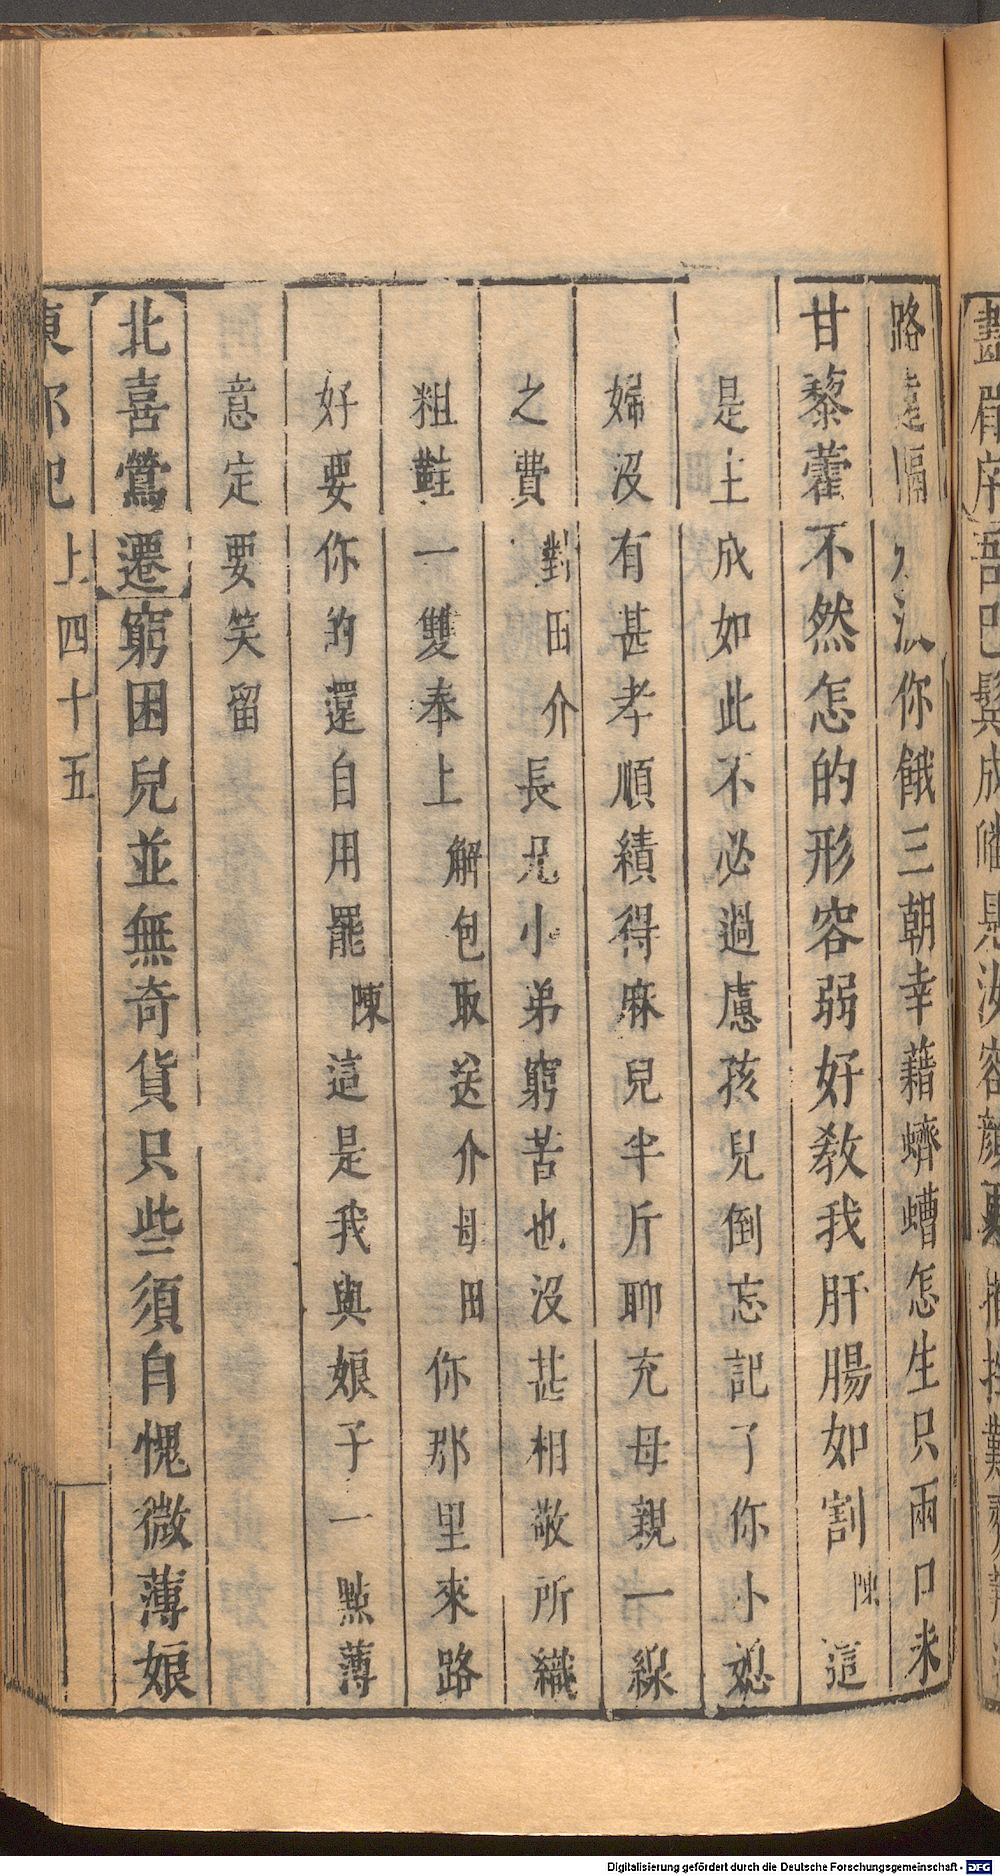 路遠隔久沒你餓三朝幸藉蠐螬怎生只兩口米
甘藜藿不然怎的形容弱好教我肝腸如割 陳 這
是土成如此不必過慮孩兒倒忘記了你小媳
婦沒有甚孝順績得麻兒半斤聊充母親一線
之費 對田介 長兄小弟窮苦也沒甚相敬所織
粗鞋一雙奉上 解包取送介母田 你那里來路
好要你的還自用罷 陳 這是我與娘子一點薄
意定要笑留
北喜鶯遷窮困兒並無奇貨只些須自愧微薄娘
東郭記 上四十五
Digitalisierung gefördert durch die Deutsche Forschungsgemeinschaft - DFG